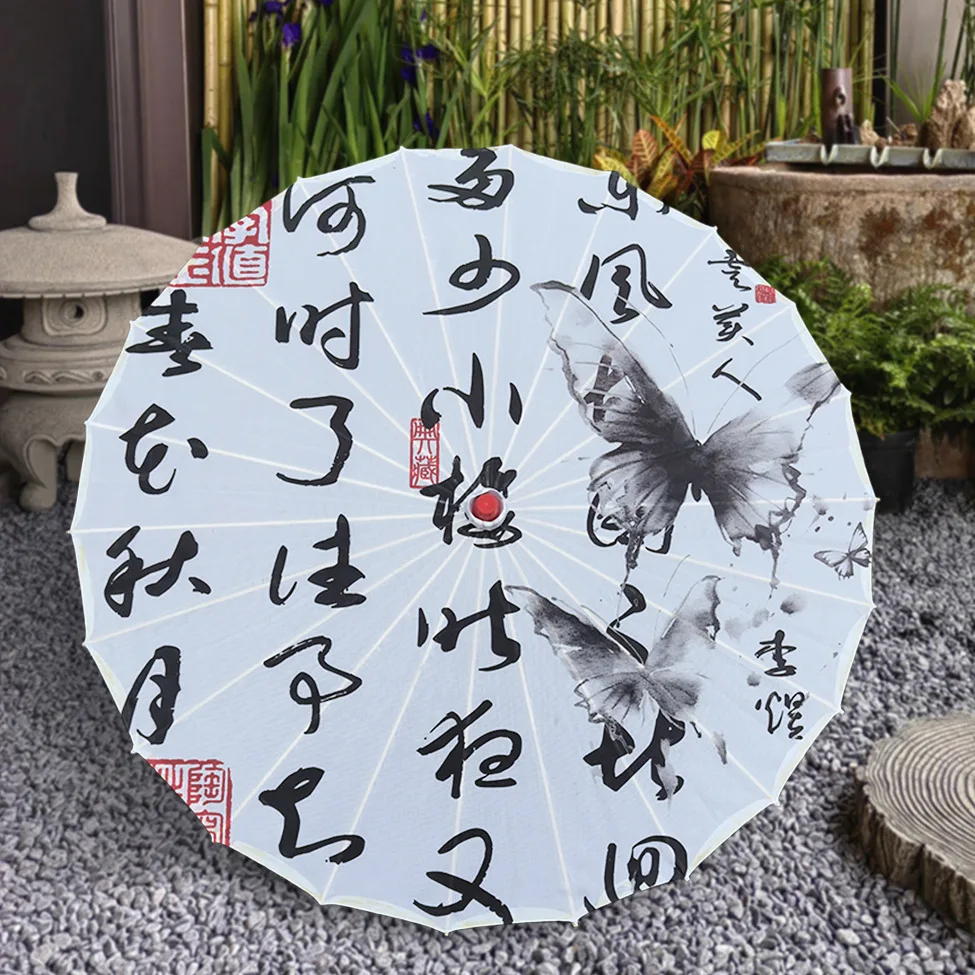 春花秋月
何时了往事知
多少小楼昨夜又
典藏
东风故国不堪回
虞美人
李煜